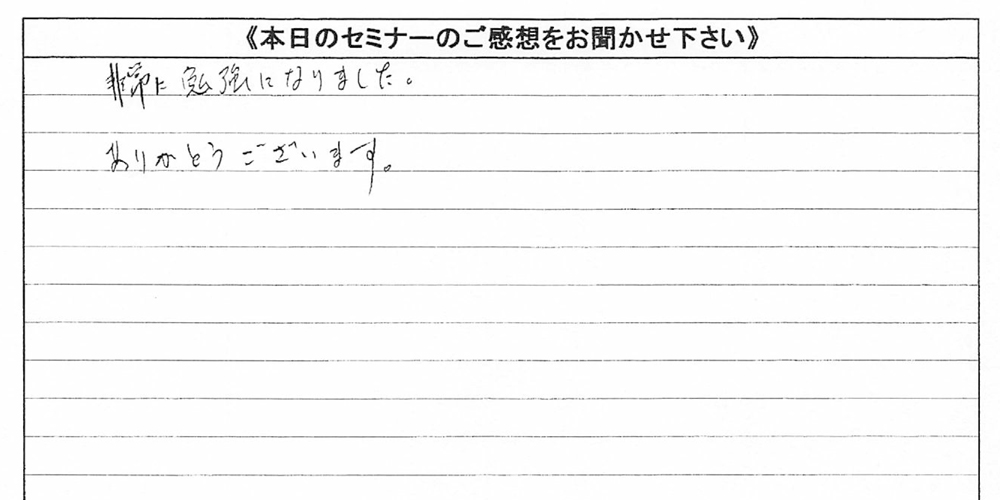 《本日のセミナーのご感想をお聞かせ下さい》
非常に勉強になりました。
ありがとうございます。